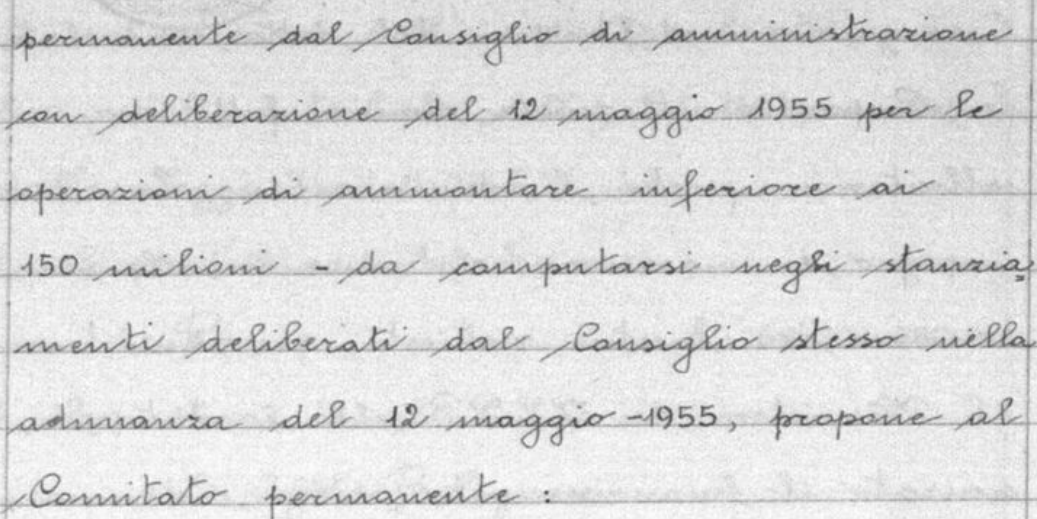 permanente dal Consiglio di amministrazione
con deliberazione del 12 maggio 1955 per le
operazioni di ammontare inferiore ai
150 milioni - da computarsi negli stanzia=
menti deliberati dal Consiglio stesso nella
adunanza del 12 maggio -1955, propone al
Comitato permanente :